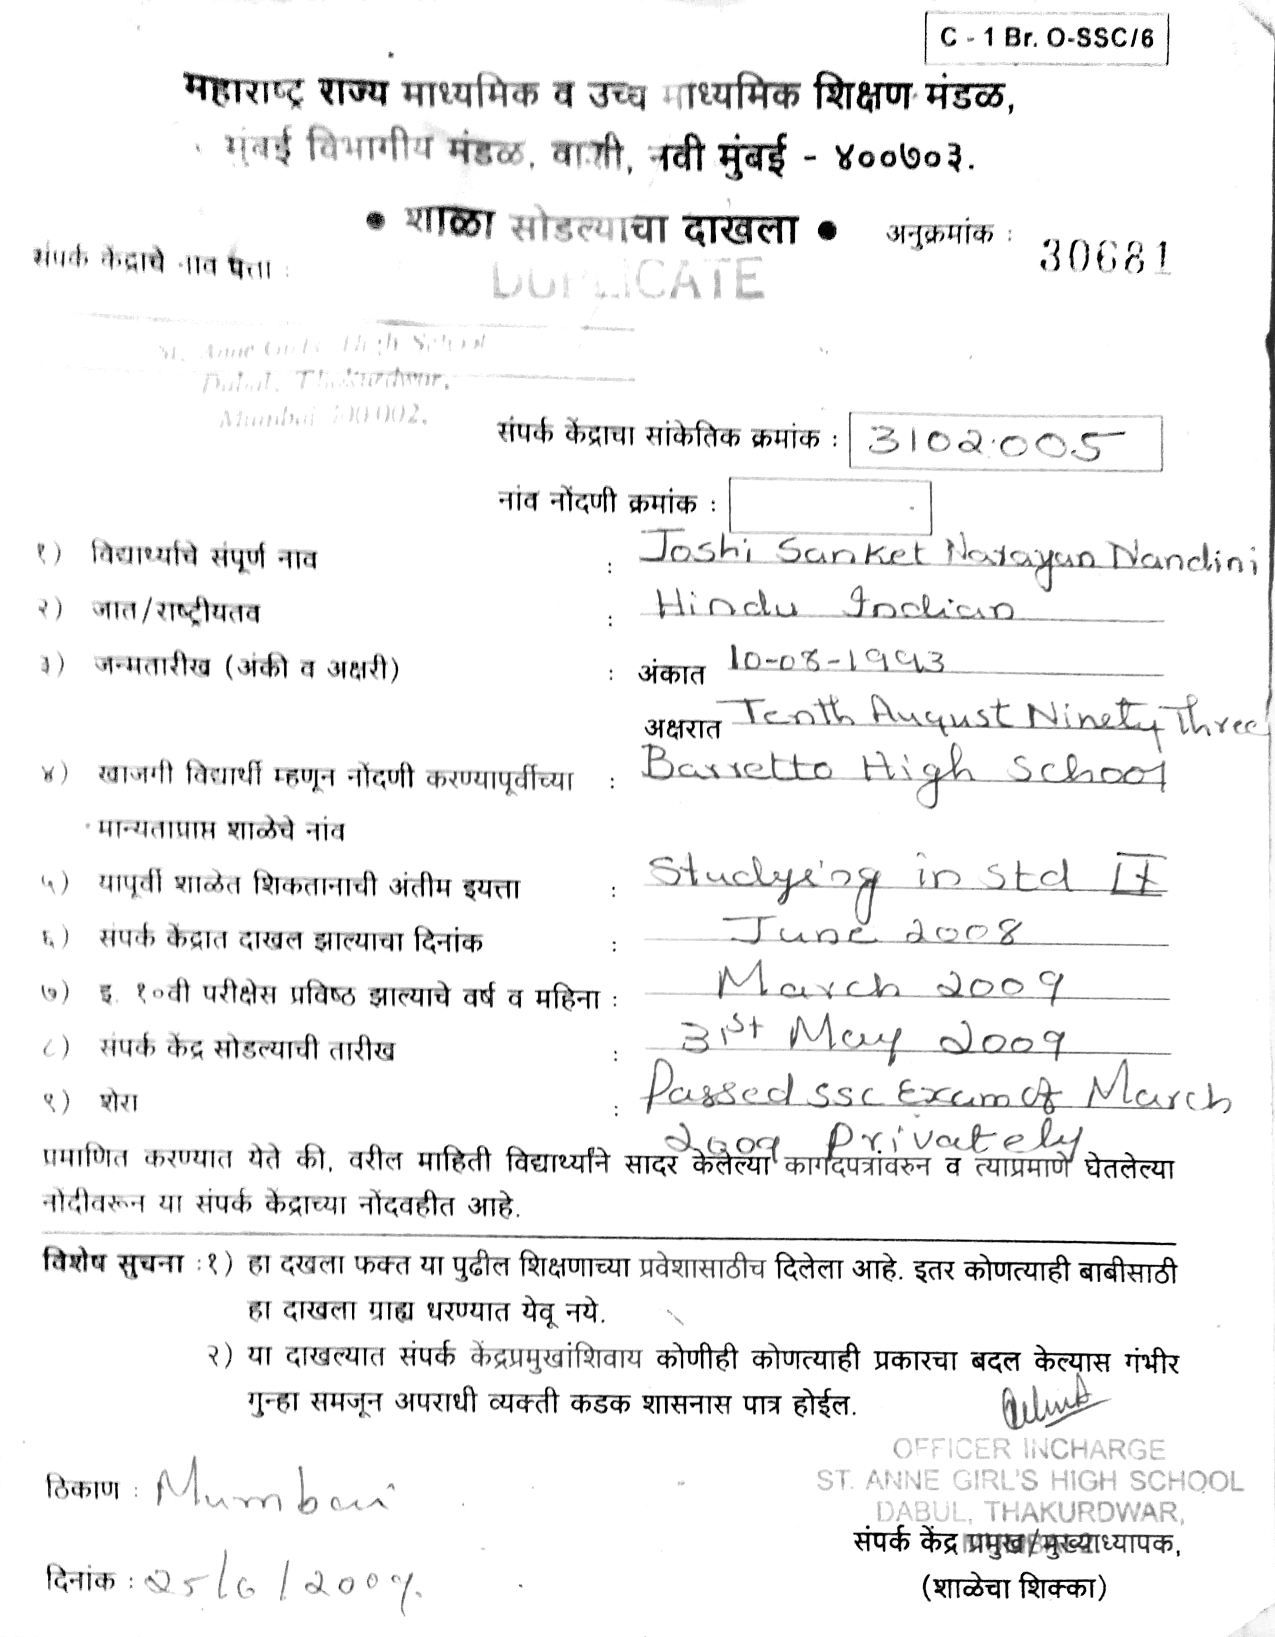 C - 1 Br. O-SSC/6
महाराष्ट्र राज्य माध्यमिक व उच्च माध्यमिक शिक्षण मंडळ,
मुंबई विभागीय मंडळ, वाशी, नवी मुंबई - ४००७०३.
● शाळा सोडल्याचा दाखला ● अनुक्रमांक : 30681
संपर्क केंद्राचे नाव पत्ता :
DUPLICATE
St. Anne Girl's High School
Dabul, Thakurdwar,
Mumbai 400 002.
संपर्क केंद्राचा सांकेतिक क्रमांक : 3102.005
नांव नोंदणी क्रमांक :
१) विद्यार्थ्याचे संपूर्ण नाव : Joshi Sanket Narayan Nandini
२) जात/राष्ट्रीयतव : Hindu Indian
३) जन्मतारीख (अंकी व अक्षरी) : अंकात 10-08-1993
अक्षरात Tenth August Ninety Three
४) खाजगी विद्यार्थी म्हणून नोंदणी करण्यापूर्वीच्या : Barretto High School
मान्यताप्राप्त शाळेचे नांव
५) यापूर्वी शाळेत शिकतानाची अंतीम इयत्ता : Studying in std IX
६) संपर्क केंद्रात दाखल झाल्याचा दिनांक : June 2008
७) इ. १०वी परीक्षेस प्रविष्ठ झाल्याचे वर्ष व महिना : March 2009
८) संपर्क केंद्र सोडल्याची तारीख : 31st May 2009
९) शेरा : Passed SSC Exam of March
2009 Privately
प्रमाणित करण्यात येते की, वरील माहिती विद्यार्थ्याने सादर केलेल्या कागदपत्रांवरुन व त्याप्रमाणे घेतलेल्या
नोंदीवरून या संपर्क केंद्राच्या नोंदवहीत आहे.
विशेष सुचना : १) हा दखला फक्त या पुढील शिक्षणाच्या प्रवेशासाठीच दिलेला आहे. इतर कोणत्याही बाबीसाठी
हा दाखला ग्राह्य धरण्यात येवू नये.
२) या दाखल्यात संपर्क केंद्रप्रमुखांशिवाय कोणीही कोणत्याही प्रकारचा बदल केल्यास गंभीर
गुन्हा समजून अपराधी व्यक्ती कडक शासनास पात्र होईल.
OFFICER INCHARGE
ST. ANNE GIRL'S HIGH SCHOOL
DABUL, THAKURDWAR,
ठिकाण : Mumbai
संपर्क केंद्र प्रमुख/मुख्याध्यापक,
दिनांक : 25/6/2009.
(शाळेचा शिक्का)